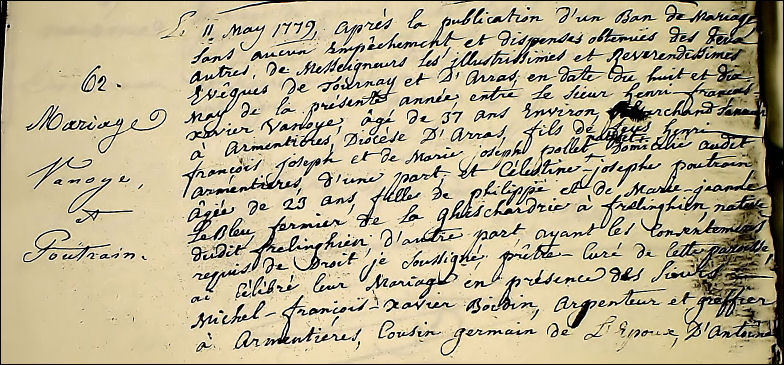 62.
Mariage
Vanoye,
&
Poutrain.
Le 11 May 1779, après la publication d'un Ban de Mariage
sans aucun Empêchement et dispenses obtenües des deux
autres, de Messeigneurs les illustrissimes et Reverendissimes
Evêques de Tournay et D'Arras, en date du huit et dix
May de la présente année, entre le Sieur henri-françois-
xavier Vanoye, âgé de 37 ans Environ, Marchand
à Armentières, Diocèse D'Arras, fils de henri
françois Joseph et de Marie joseph pollet Domicilié audit
armentieres, d'une part et Célestine-josephe poutrain
âgée de 23 ans, fille de philippe et de Marie-jeanne
Le Bleu, fermier de la à frelinghien, native
dudit frelinghien, d'autre part ayant les Consentemens
requis de Droit je Soussigné prêtre-Curé de Cette paroisse,
ai Célébré leur Mariage en présence des Sieurs
Michel-françois-xavier Bordin, Arpenteur et greffier
à Armentières, Cousin germain de L'Epoux, D'Antoine